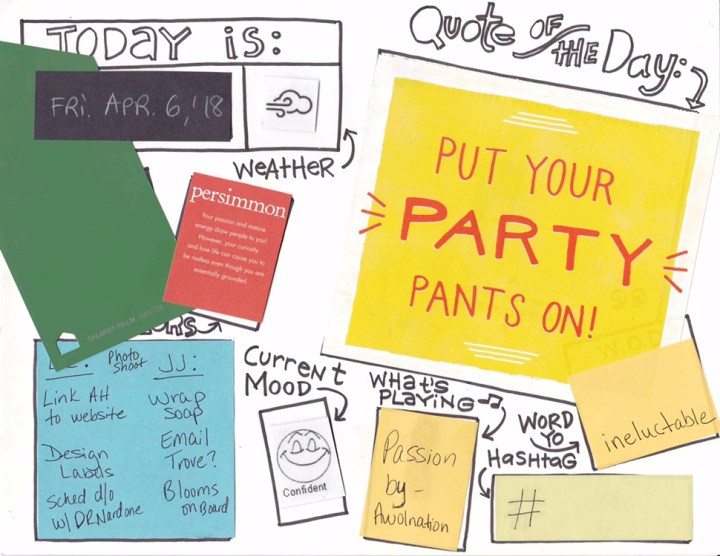 TODAY is:
FRI. APR. 6, '18
WEATHER
QUOTE OF THE DAY:
PUT YOUR
PARTY
PANTS ON!
persimmon
Your passion and mature
energy draw people to you!
However, your curiosity
and love life can cause you to
be restless even though you are
essentially grounded.
TALIPOT PALM
Photo shoot
JJ:
Link AH
to website
Design
Labels
Sched d/o
w/ DR Nardone
Wrap
Soap
Email
Trove?
Blooms
on Board
CURRENT
MOOD
Confident
WHAT'S
PLAYING
Passion
by -
Awolnation
WORD
YO
ineluctable
HASHTAG
#